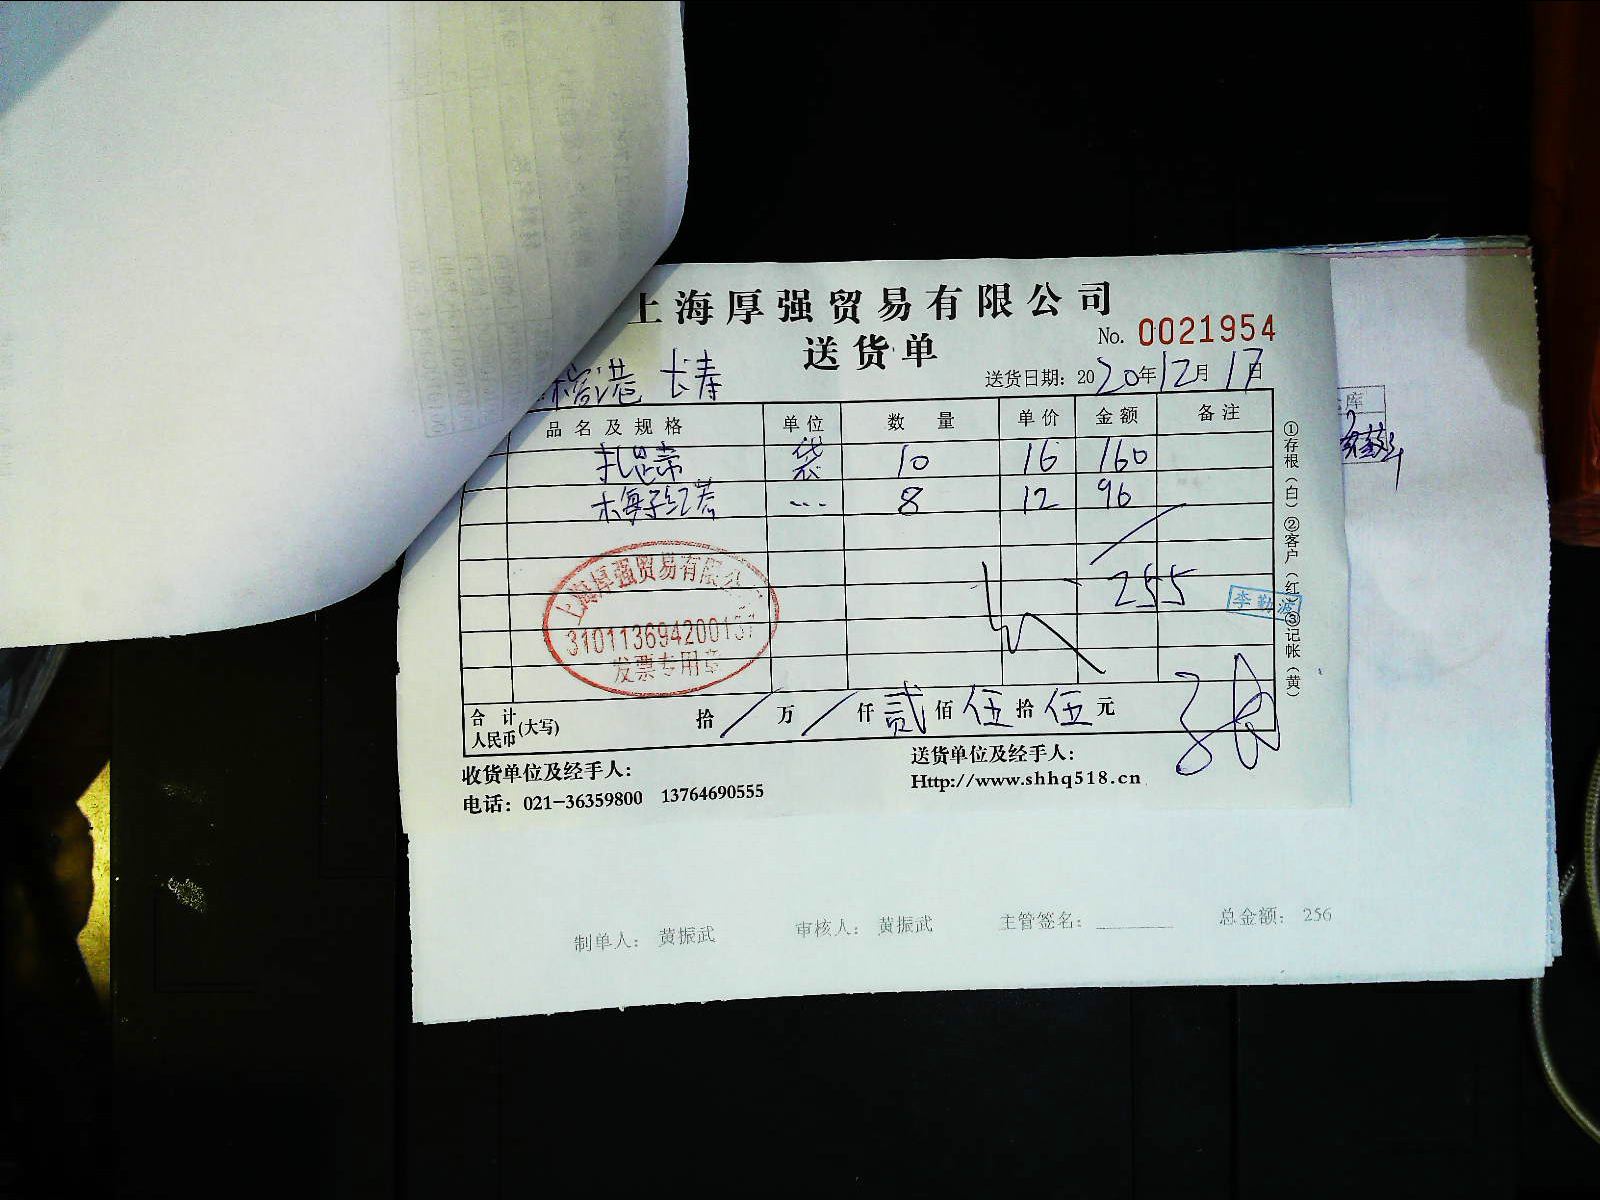 上海厚强贸易有限公司
送货单
No. 0021954
港 长寿
送货日期：2020年12月17日
品名及规格 单位 数量 单价 金额 备注
袋 10 16 160
8 12 96
255
上海厚强贸易有限公司
发票专用章
李勤波
合计人民币(大写) 拾/万/仟贰佰伍拾伍元
收货单位及经手人：
送货单位及经手人：
电话：021-36359800 13764690555
Http://www.shhq518.cn
①存根（白）②客户（红）③记帐（黄）
库
制单人： 黄振武 审核人： 黄振武 主管签名： 总金额： 256